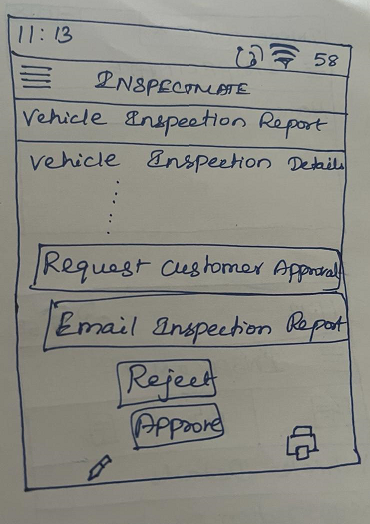 11:13
58
INSPECTMATE
Vehicle Inspection Report
Vehicle Inspection Details
Request Customer Approval
Email Inspection Report
Reject
Approve